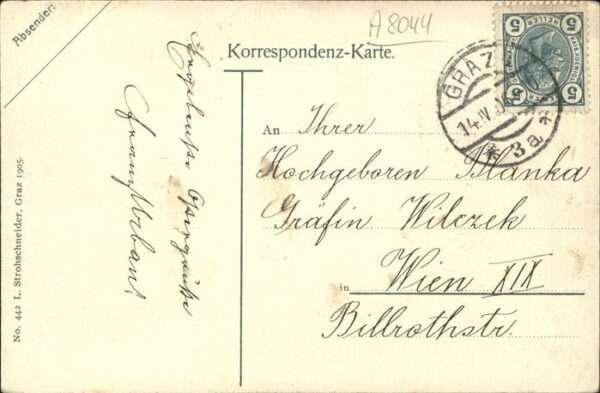 Absender:
A 8044
Korrespondenz-Karte.
5 5
HELLER
5 5
GRAZ
14. IV.
* 3a *
Franz Urban
An Ihrer
Hochgeboren Blanka
Gräfin Wilczek
in Wien XIX
Billrothstr.
No. 442 L. Strohschneider, Graz 1905.